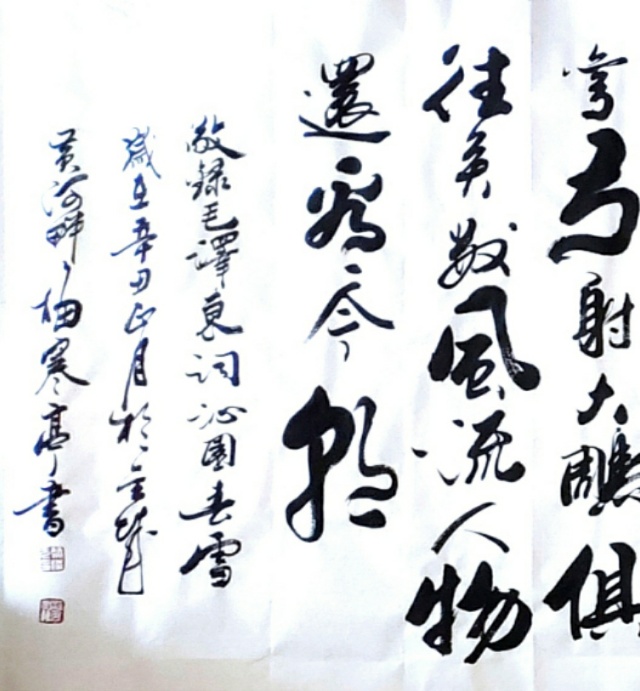 弓射大雕俱
往矣数風流人物
還看今朝
敬録毛澤東詞沁園春雪
歲在辛丑正月於金城
黄河畔寒亭書